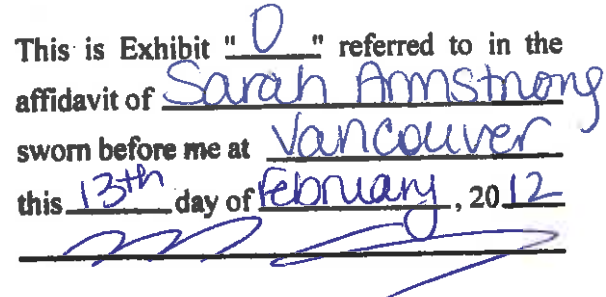 This is Exhibit " O " referred to in the
affidavit of Sarah Armstrong
sworn before me at Vancouver
this 13th day of February, 2012